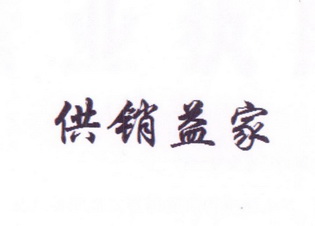 供销益家